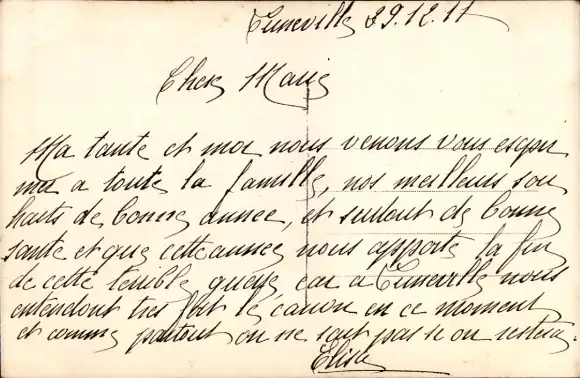 Luneville 29.12.17
Cher Marie
Ma tante et moi nous venons vous expri
mer a toute la famille, nos meilleurs sou
haits de bonne annee, et surtout de bonne
santé et que cette annee nous apporte la fin
de cette terible guerre car a Luneville nous
entendont tres fort le canon en ce moment
et comme partout on ne sait pas si on restera.
Elise